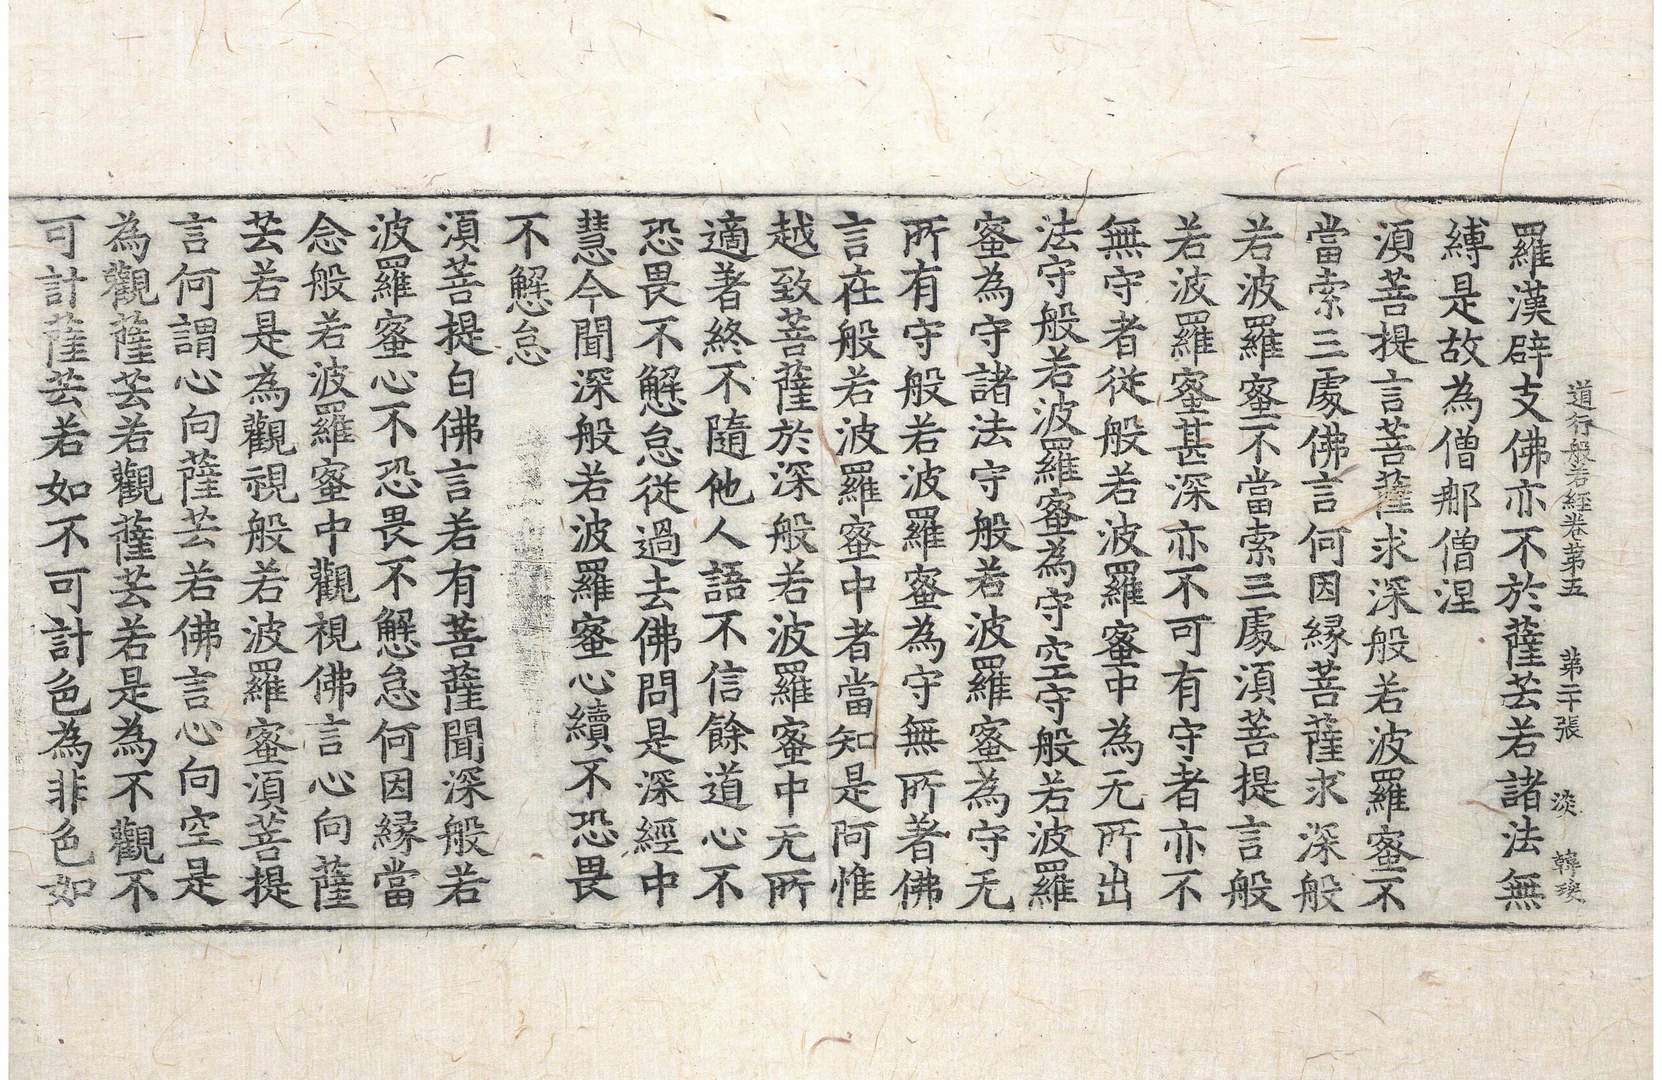 道行般若經卷第五 第二十張 淡 韓
羅漢辟支佛亦不於薩芸若諸法無
縛是故為僧那僧涅
湏菩提言菩薩求深般若波羅蜜不
當索三處佛言何因緣菩薩求深般
若波羅蜜不當索三處湏菩提言般
若波羅蜜甚深亦不可有守者亦不
無守者從般若波羅蜜中為无所出
法守般若波羅蜜為守空守般若波羅
蜜為守諸法守般若波羅蜜為守无
所有守般若波羅蜜為守無所著佛
言在般若波羅蜜中者當知是阿惟
越致菩薩於深般若波羅蜜中无所
適著終不隨他人語不信餘道心不
恐畏不懈怠從過去佛問是深經中
慧今聞深般若波羅蜜心續不恐畏
不懈怠
湏菩提白佛言若有菩薩聞深般若
波羅蜜心不恐畏不懈怠何因緣當
念般若波羅蜜中觀視佛言心向薩
芸若是為觀視般若波羅蜜湏菩提
言何謂心向薩芸若佛言心向空是
為觀薩芸若觀薩芸若是為不觀不
可計薩芸若如不可計色為非色如